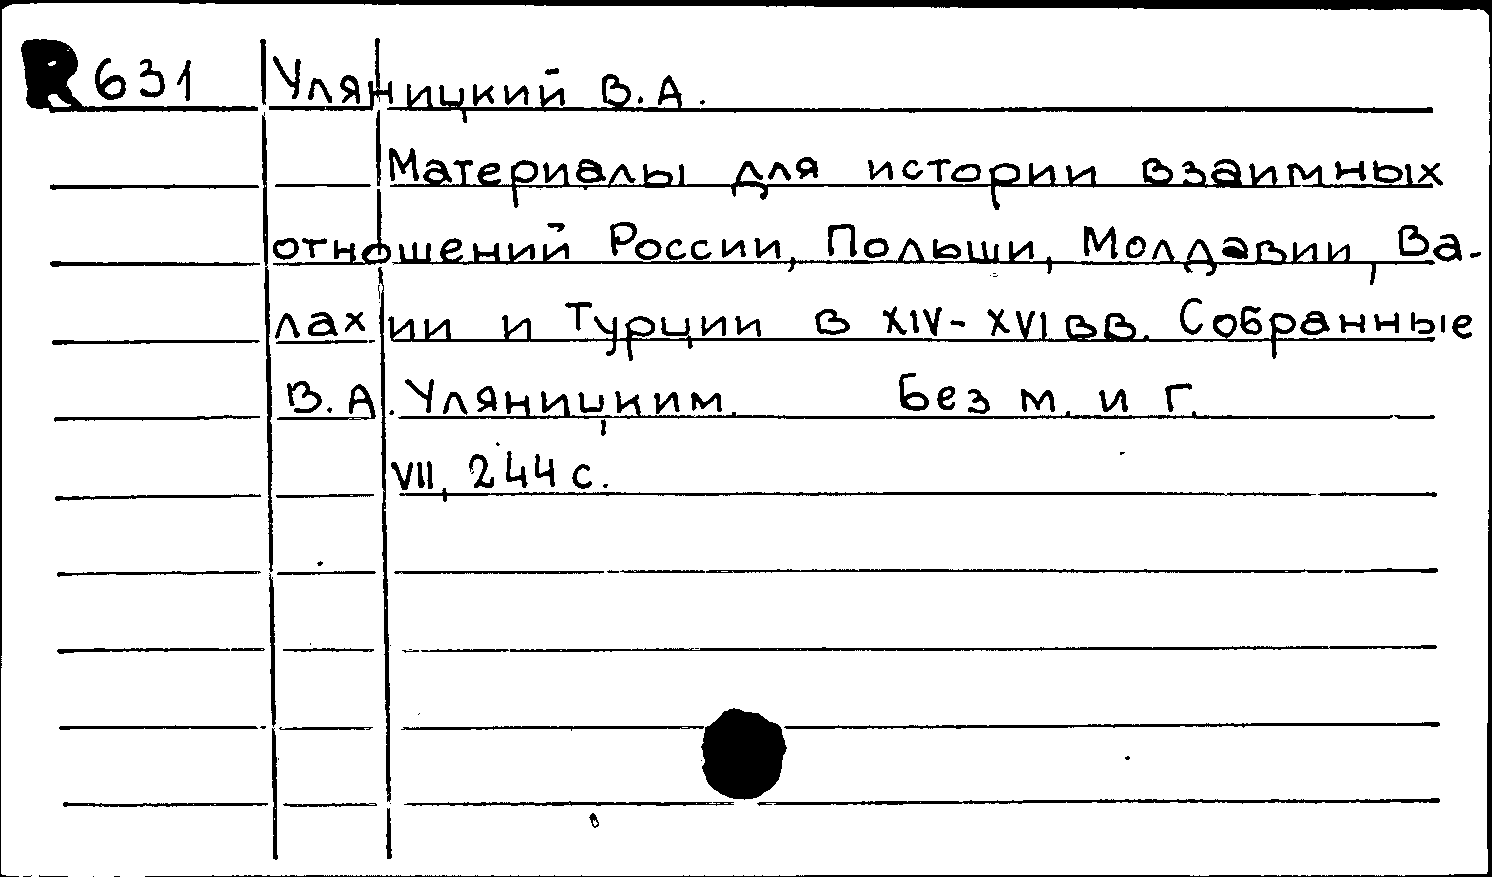 R 631 Уляницкий В.А.
Материалы для истории взаимных
отношений России, Польши, Молдавии, Ва-
лахии и Турции в XIV-XVI вв. Собранные
В.А. Уляницким. Без м. и г.
VII, 244 с.